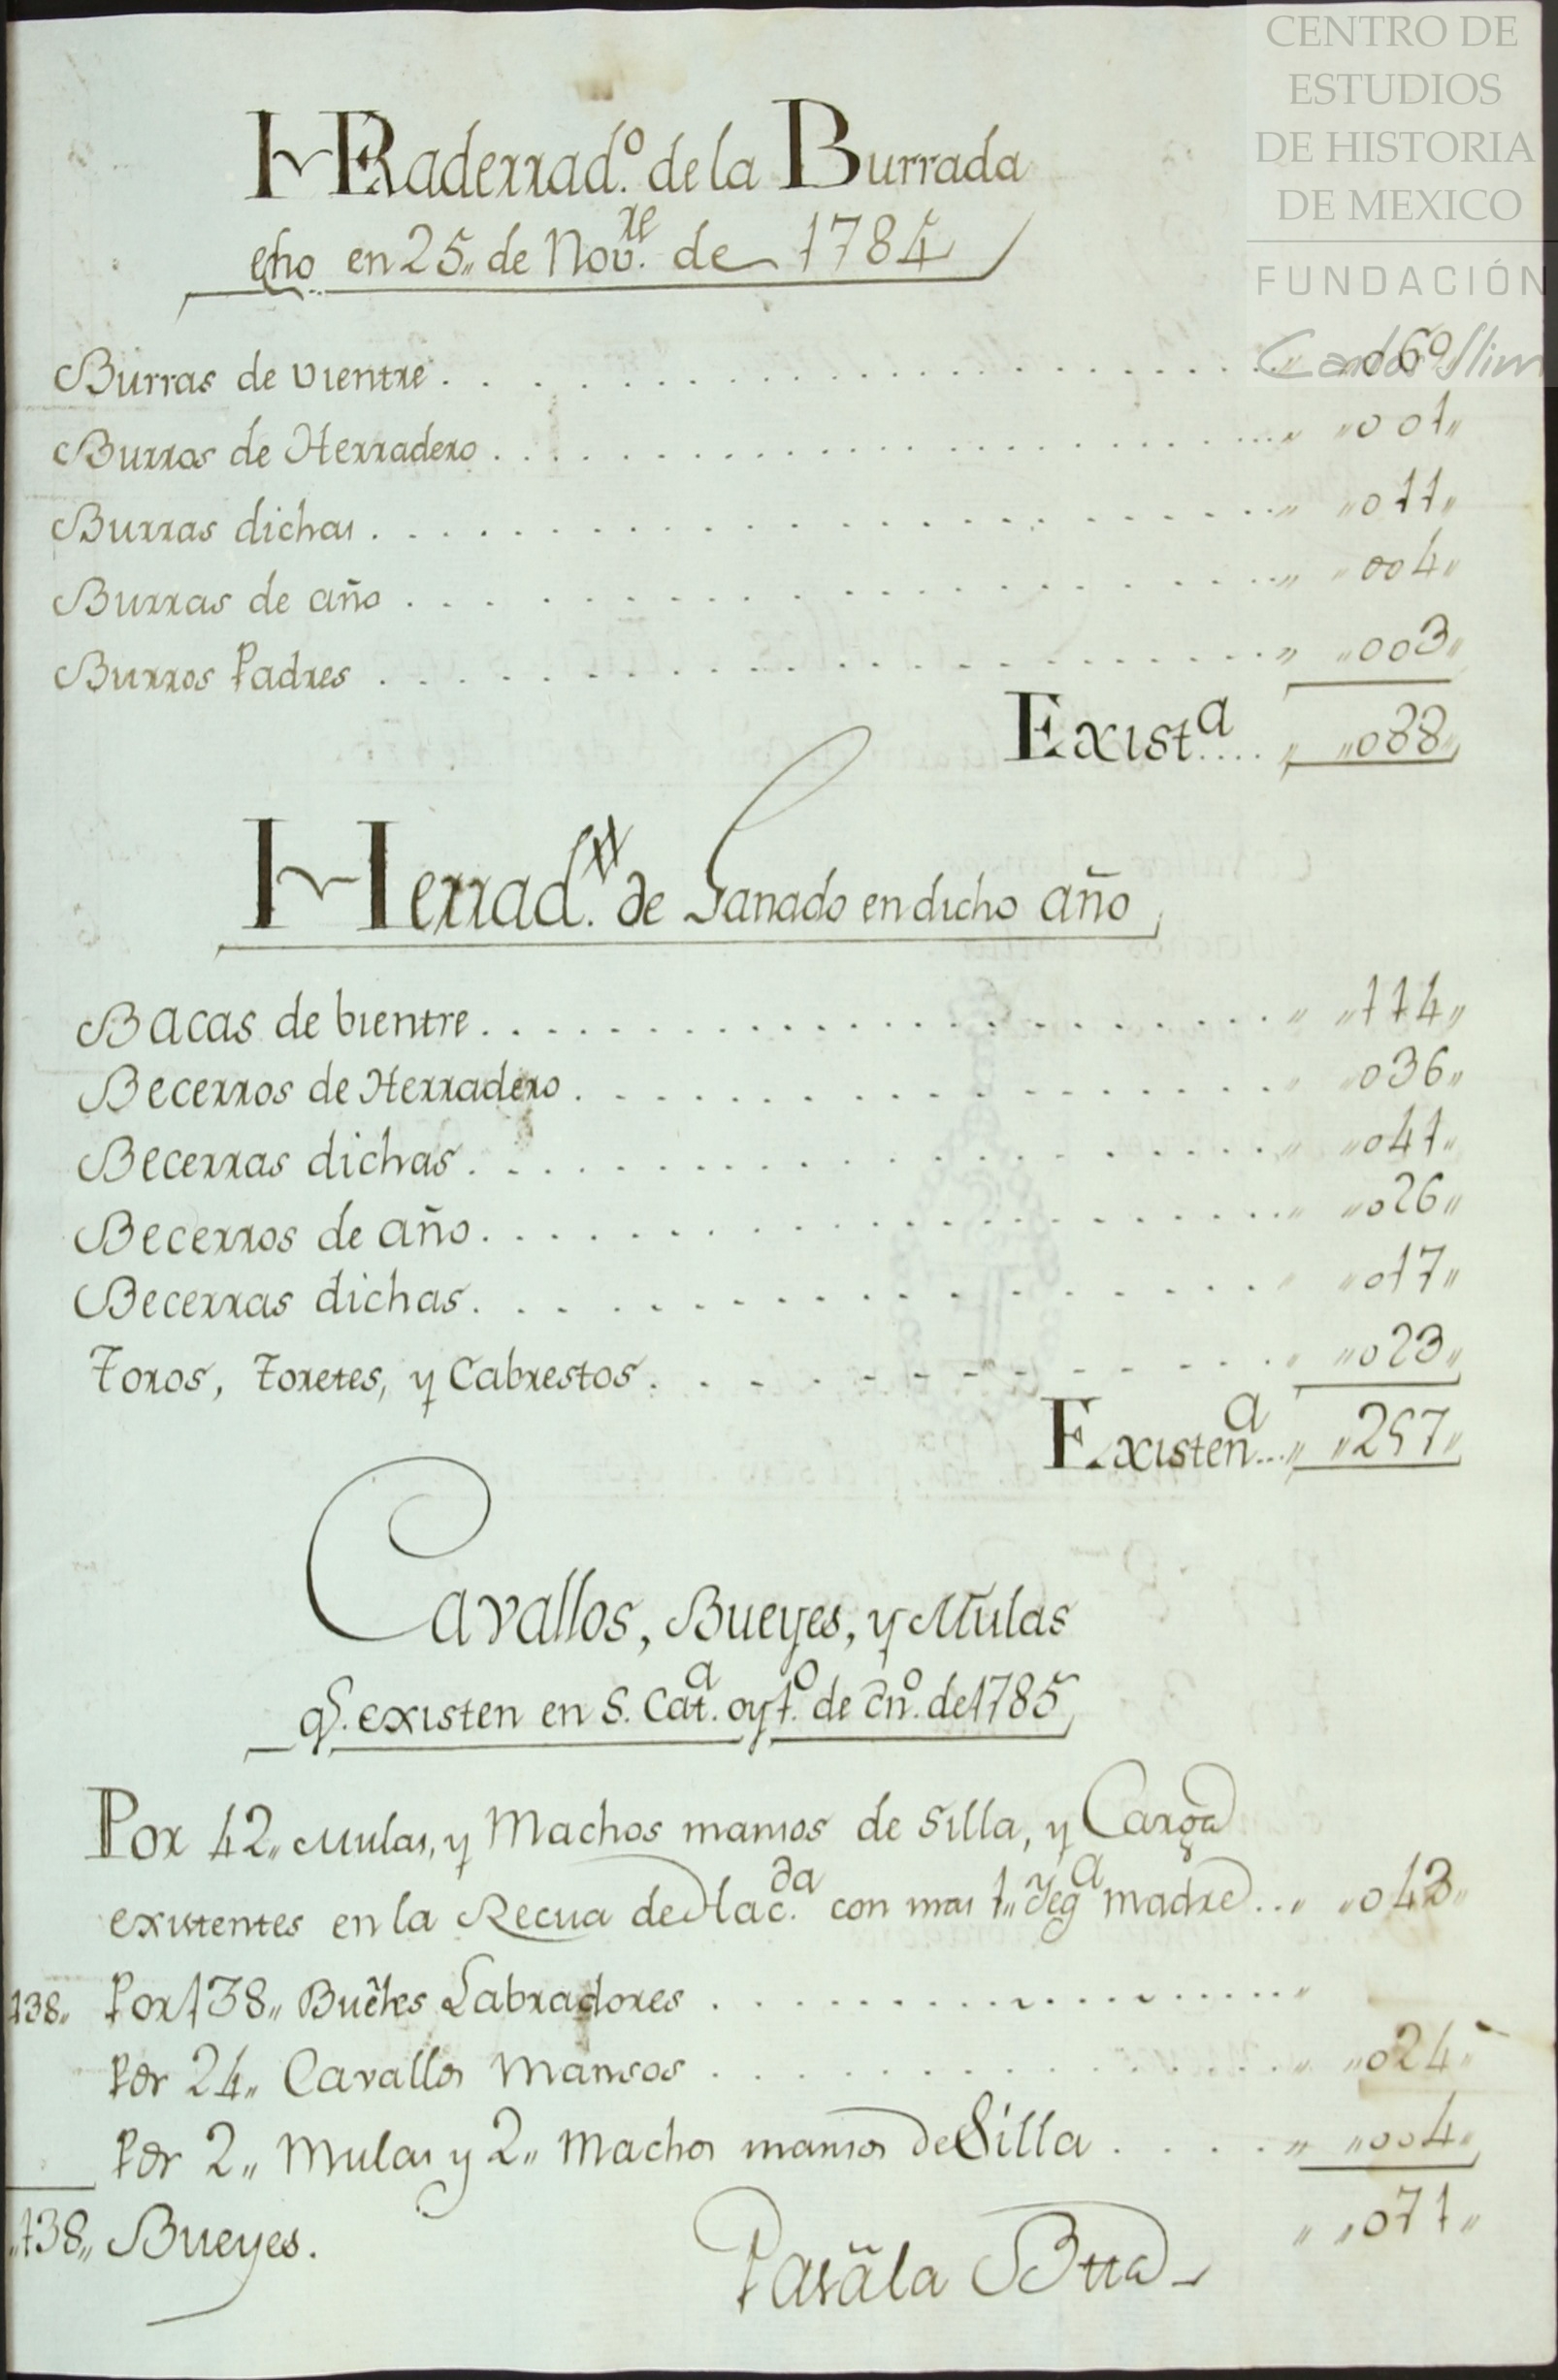 CENTRO DE
ESTUDIOS
DE HISTORIA
DE MEXICO
FUNDACIÓN
Carlos Slim
HRaderrad.º de la Burrada
echo en 25,, de Nov.re de 1784
Burras de vientre . . . ,, 069
Burros de Herradero . . . ,, ,,001,,
Burras dichas . . . ,, ,,011,,
Burras de año . . . ,, ,,004,,
Burros Padres . . . ,, ,,003,,
Exist.a . . . ,, ,,088,,
Herrad.º de Ganado en dicho año
Bacas de bientre . . . ,, ,,114,,
Becerros de Herradero . . . ,, ,,036,,
Becerras dichas . . . ,, ,,041,,
Becerros de año . . . ,, ,,026,,
Becerras dichas . . . ,, ,,017,,
Toros, Toretes, y Cabrestos . . . ,, ,,023,,
Existen.a . . . ,, ,,257,,
Cavallos, Bueyes, y Mulas
q.e existen en S. Cat.a oy 1.º de En.º de 1785
Por 42,, Mulas, y Machos mansos de Silla, y Carga
existentes en la Recua de Hac.da con mas 1,, Yeg.a madre . . . ,, ,,043,,
138,, Por 138,, Bueies Labradores . . . ,,
Por 24,, Cavallos Mansos . . . ,, ,,024,,
Por 2,, Mulas y 2,, Machos mansos de Silla . . . ,, ,,004,,
,,138,, Bueyes. ,, ,,071,,
Pasa â la Bta